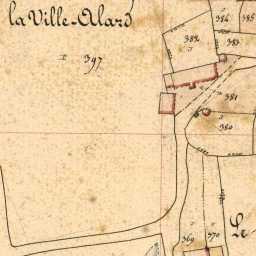 la Ville-Alard
384
385
382
383
397
381
380
Le
369
370